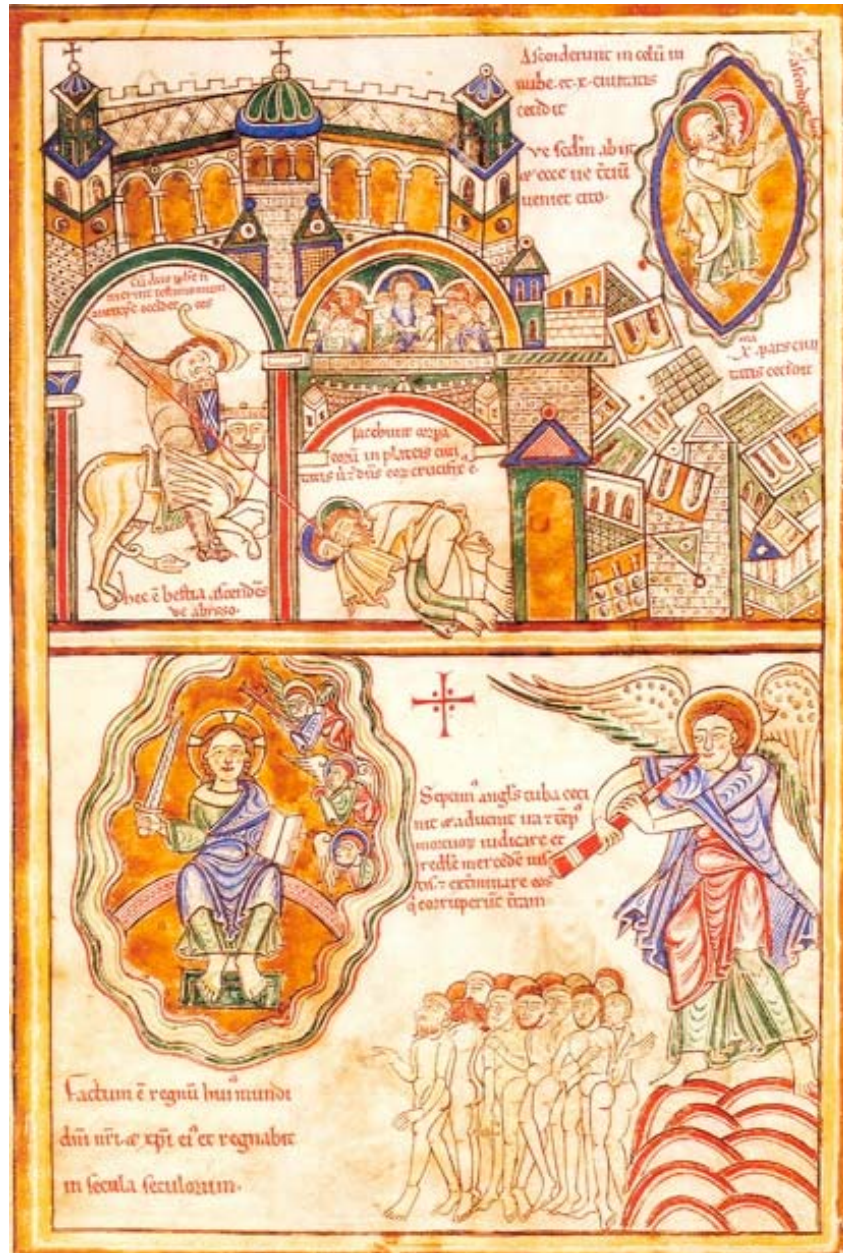 Ascenderunt in celū in
nube. et x. ciuitatis
cecidit
ve secūn abiit
& ecce ue t̄ciū
ueniet cito.
x pars ciui
tatis cecidit
occidet eos
Iacebunt corpa
eoꝝ in plateis ciui
tatis u dn̄s eoꝝ crucifix ē.
hec ē bestia ascendēs
de abisso.
Septimꝰ angls tuba ceci
nit & aduenit ira & tēpꝰ
mortuoꝝ iudicare et
reddē mercedē ius
tis. & extminare eos
q̄ corruperūt t̄ram
Factum ē regnū huiꝰ mundi
dn̄i nr̄i & xp̄i eiꝰ et regnabit
in secula seculorum.